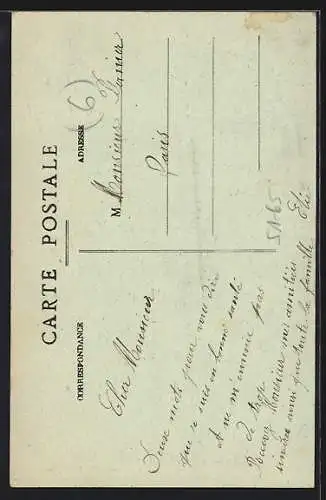 CARTE POSTALE
CORRESPONDANCE
ADRESSE
(6)
M Monsieur Panier
Paris
51-65
Cher Monsieur
Deux mots pour vous dire
que je suis en bonne santé
et ne m'ennuie pas
de trop
Recevez Monsieur mes amitiés
ainsi que toute la famille
Elie